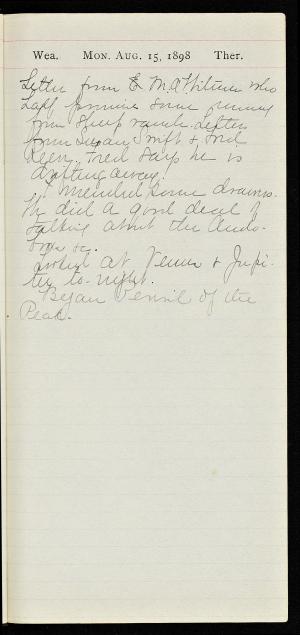 Wea. MON. AUG. 15, 1898 Ther.
Letter from E M A who
Lady promise some money
from Sheep ranch. Letters
from Susan Swift & Fred
Keen. Fred says he is
drifting away.
I mended some drawers.
We did a good deal of
talking about the
&c.
Looked at Venus & Jupi-
ter to-night.
Began Pencil of the
Peak.